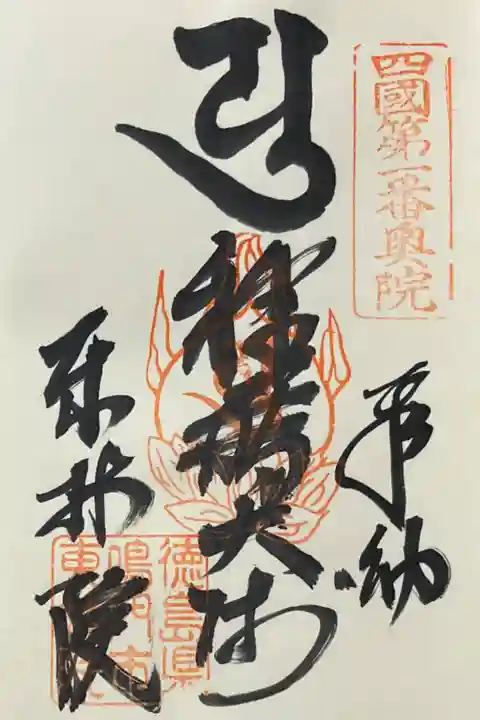 四國第一番奥院
奉納
種蒔大師
東林院
徳島県
鳴門市